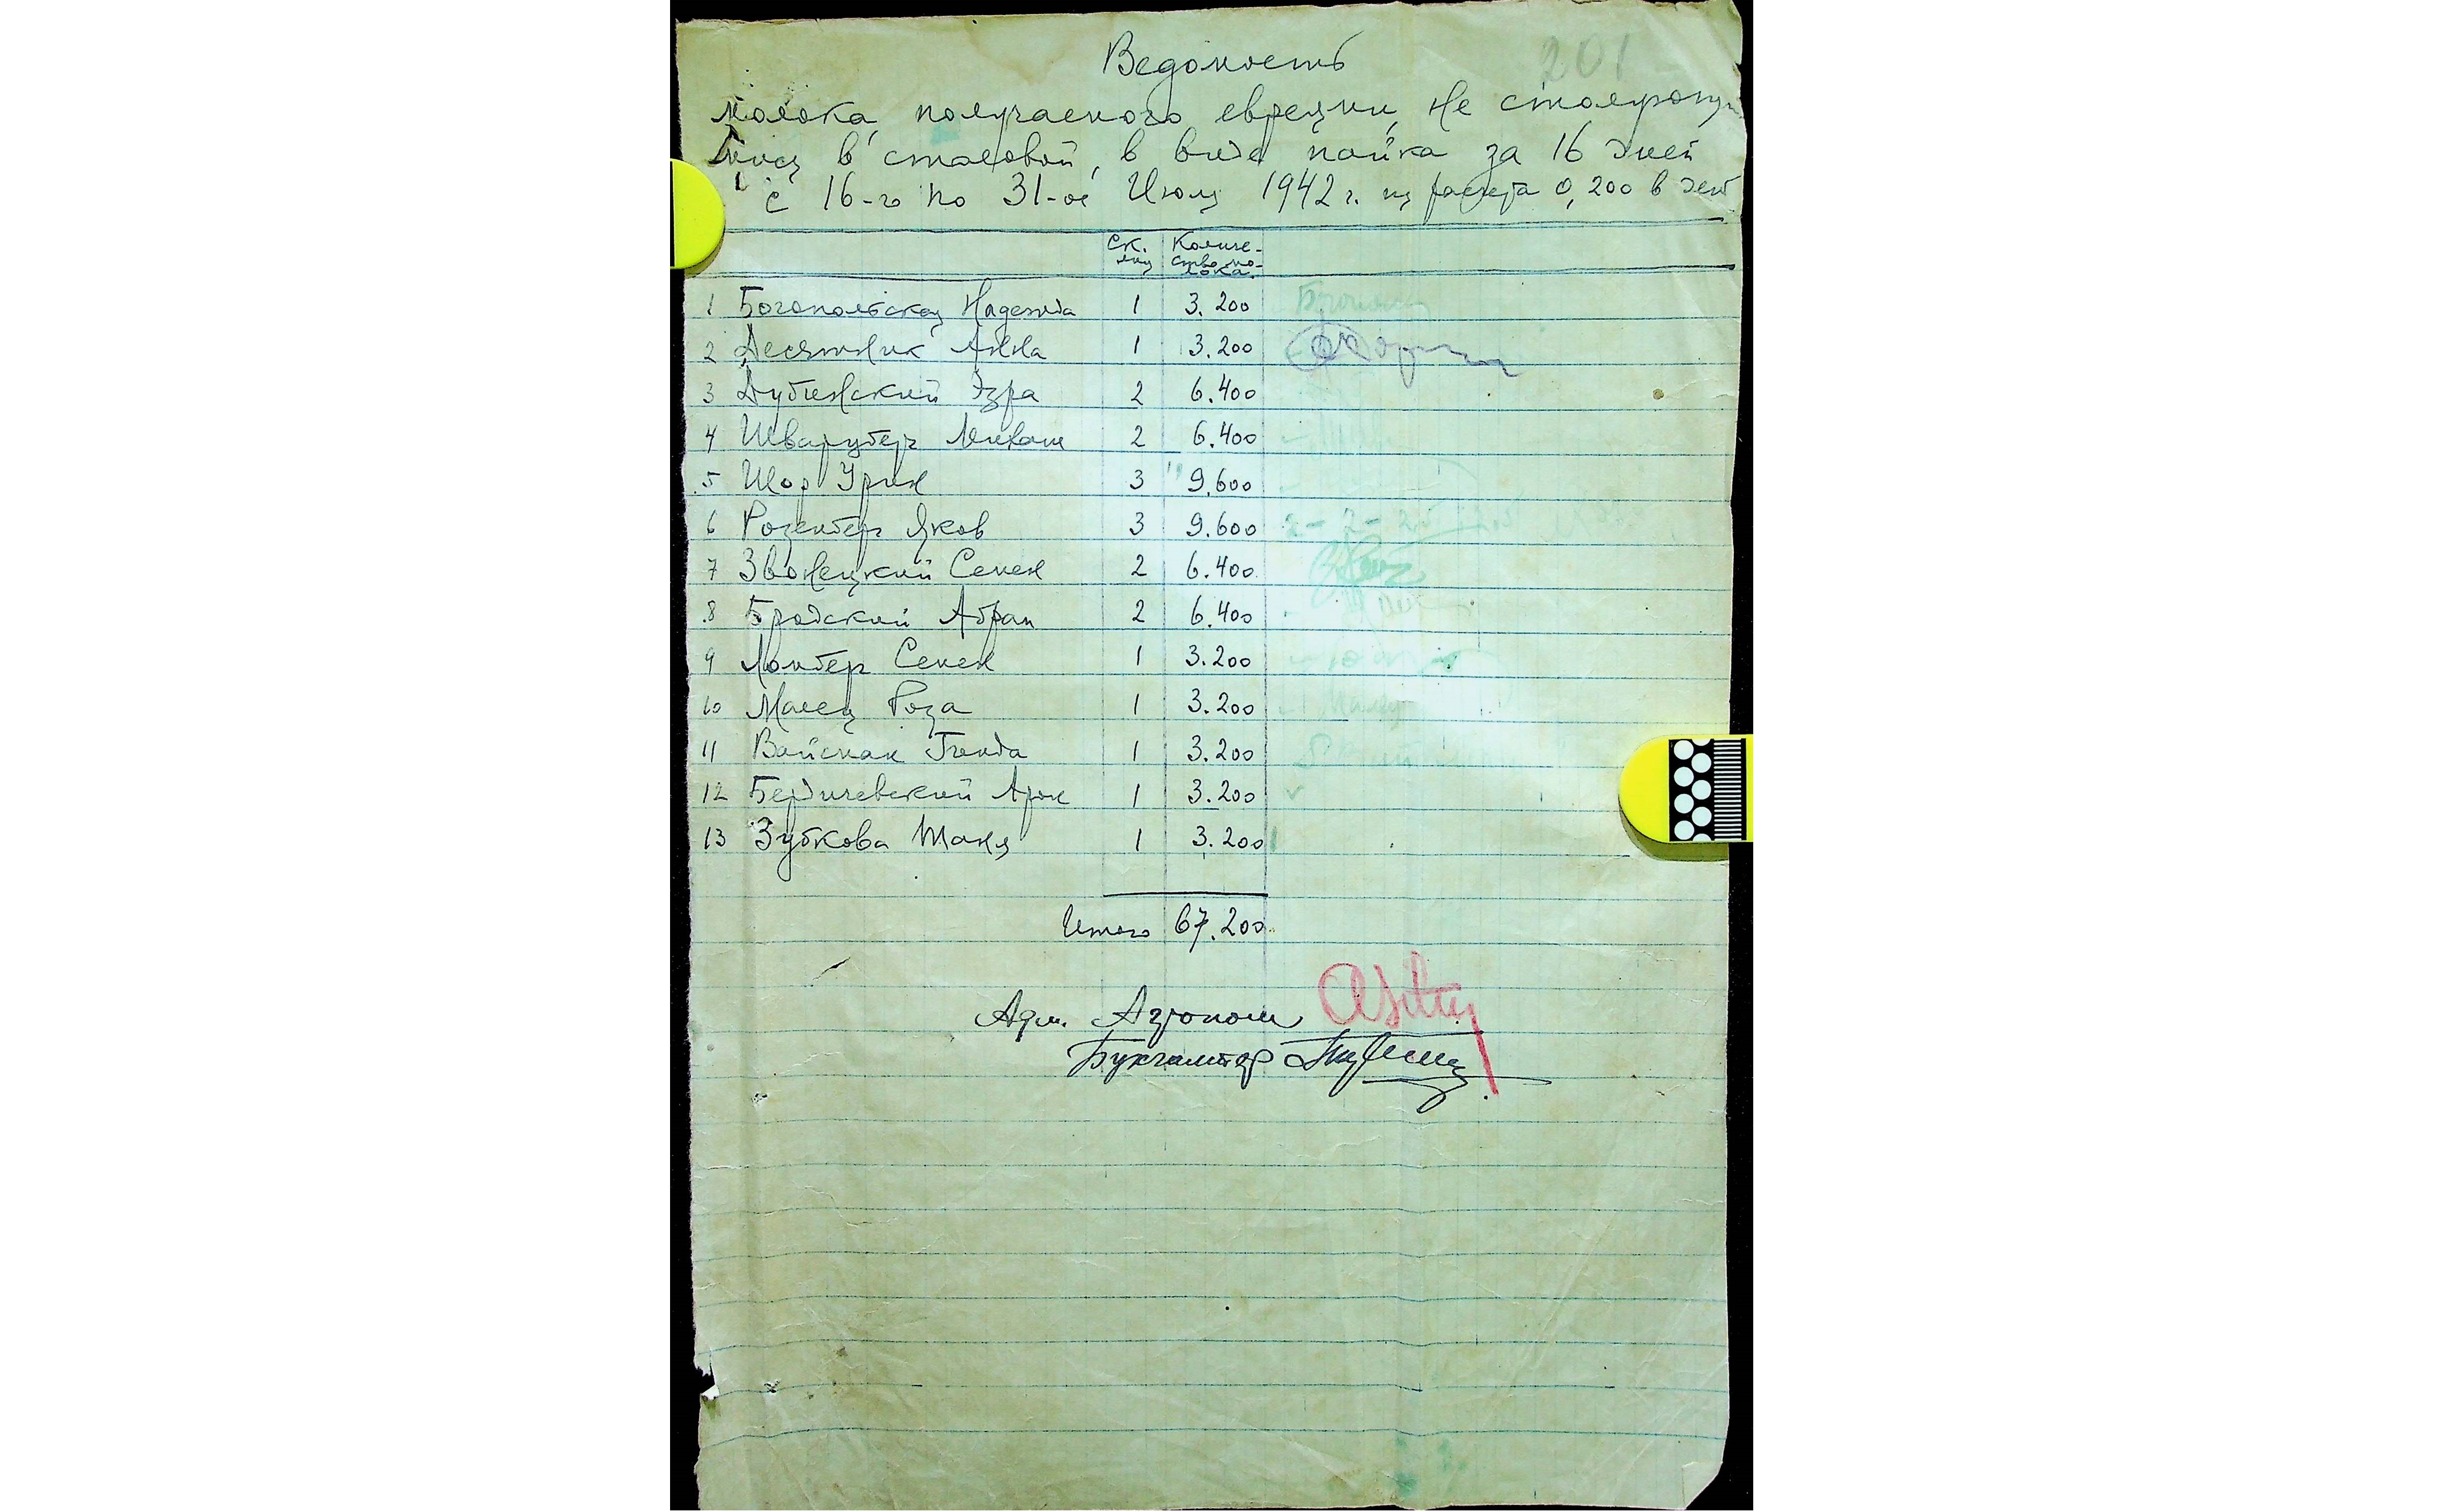 201
Ведомость
молока, получаемого евреями, не столующи
мися в столовой, в виде пайка за 16 дней
с 16-го по 31-ое Июля 1942 г. из расчета 0,200 в день
Ск. лиц Количе-ство мо-лока
1 Богопольская Надежда 1 3.200
2 Десятник Анна 1 3.200
3 Дубинский Эзра 2 6.400
4 Шварцбер 2 6.400
5 Шор Урин 3 9.600
6 Розенбер Яков 3 9.600
7 Звонецкий Семен 2 6.400
8 Бродский Абрам 2 6.400
9 Ломбер Семен 1 3.200
10 Малец Роза 1 3.200
11 Вайсман 1 3.200
12 Бердичевский Арон 1 3.200
13 Зубкова Таня 1 3.200
Итого 67.200
Адм. Агроном
Бухгалтер